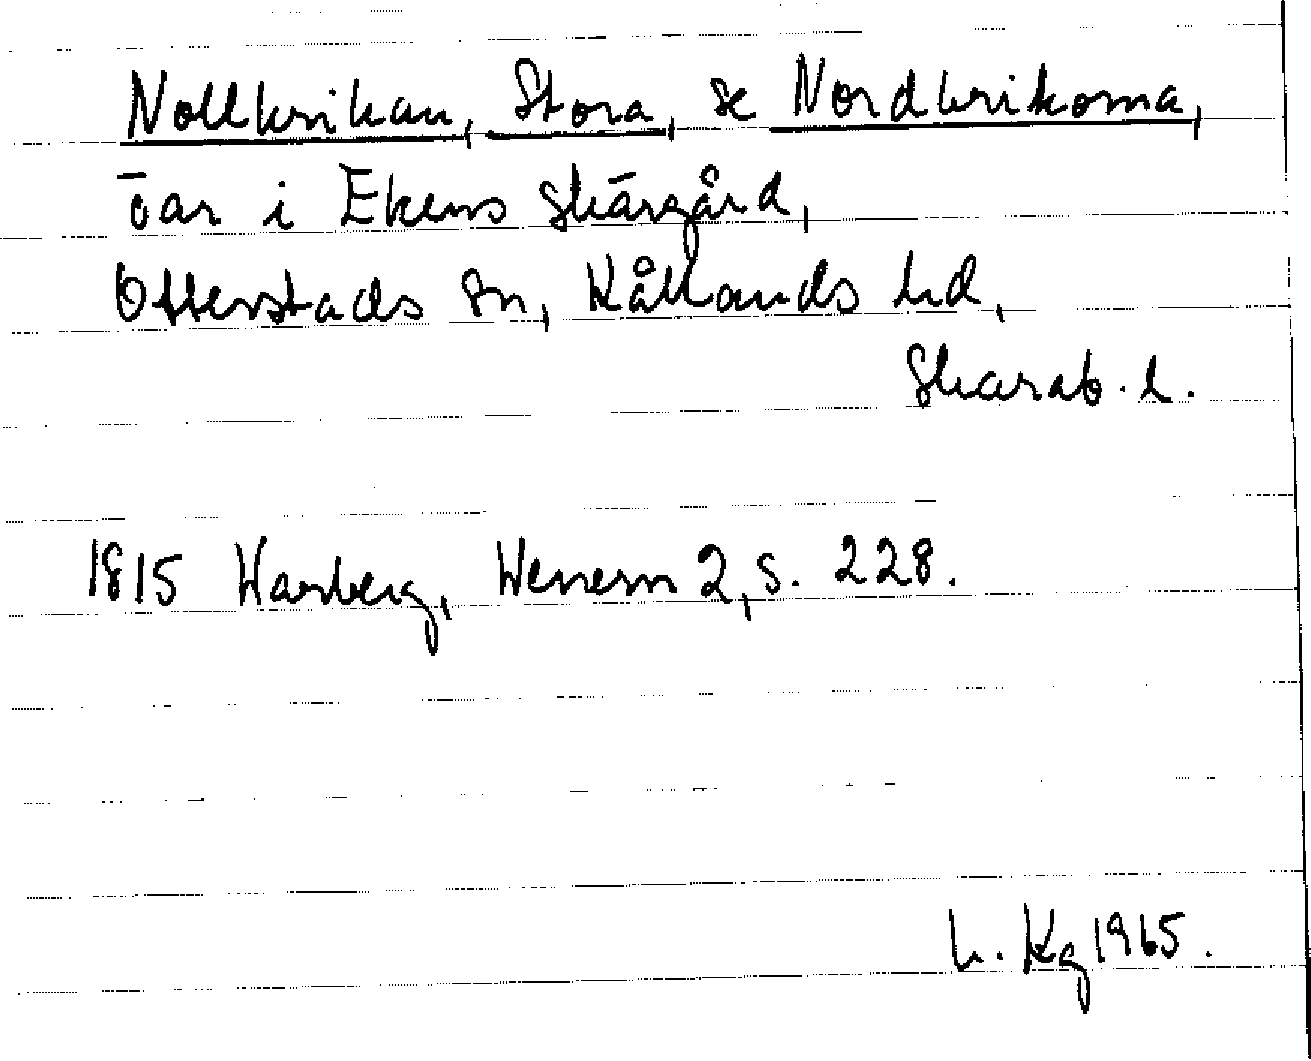 Nollkrikan, Stora, se Nordkrikorna,
öar i Ekens skärgård,
Otterstads sn, Kållands hd,
Skarab. l.
1815 Warberg, Wenern 2, s. 228.
L. Kg 1965.